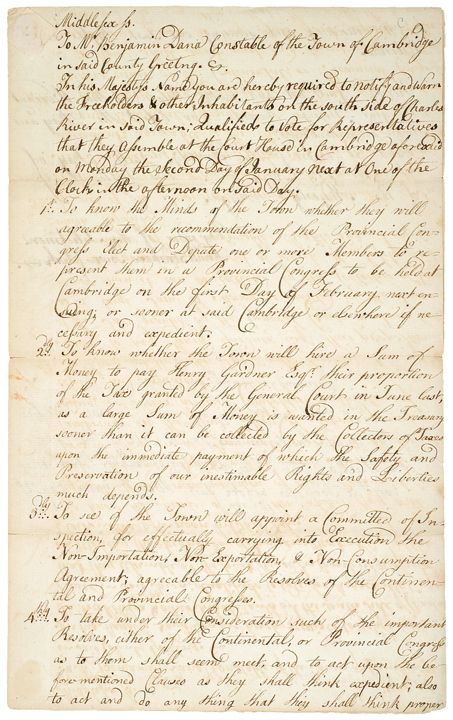 Middlesex ss.
To Mr. Benjamin Dana Constable of the Town of Cambridge
in said County Greeting. &c.
In his Majestys Name you are hereby required to notify and warn
the Freeholders & other Inhabitants on the south side of Charles
River in said Town; Qualified to Vote for Representatives
that they assemble at the Court House in Cambridge aforesaid
on Monday the second Day of January next at One of the
Clock in the afternoon on said Day.
1st. To know the Minds of the Town whether they will
agreeable to the recommendation of the Provincial Con-
gress Elect and Depute one or more Members to re-
present them in a Provincial Congress to be held at
Cambridge on the first Day of February next en-
suing; or sooner at said Cambridge or elsewhere if ne-
cessary and expedient.
2dly. To know whether the Town will hire a Sum of
Money to pay Henry Gardner Esqr. their proportion
of the Tax granted by the General Court in June last,
as a large Sum of Money is wanted in the Treasury
sooner than it can be collected by the Collectors of Taxes
upon the immediate payment of which the Safety and
Preservation of our inestimable Rights and Liberties
much depends.
3dly. To see if the Town will appoint a Committee of In-
spection, for effectually carrying into Execution the
Non-Importation, Non-Exportation, & Non-Consumption
Agreement; agreable to the Resolves of the Continen-
tal and Provincial Congresses.
4thly. To take under their Consideration such of the important
Resolves, either of the Continental, or Provincial Congress
as to them shall seem meet; and to act upon the be-
fore mentioned Clauses as they shall think expedient; also
to act and do any thing that they shall think proper